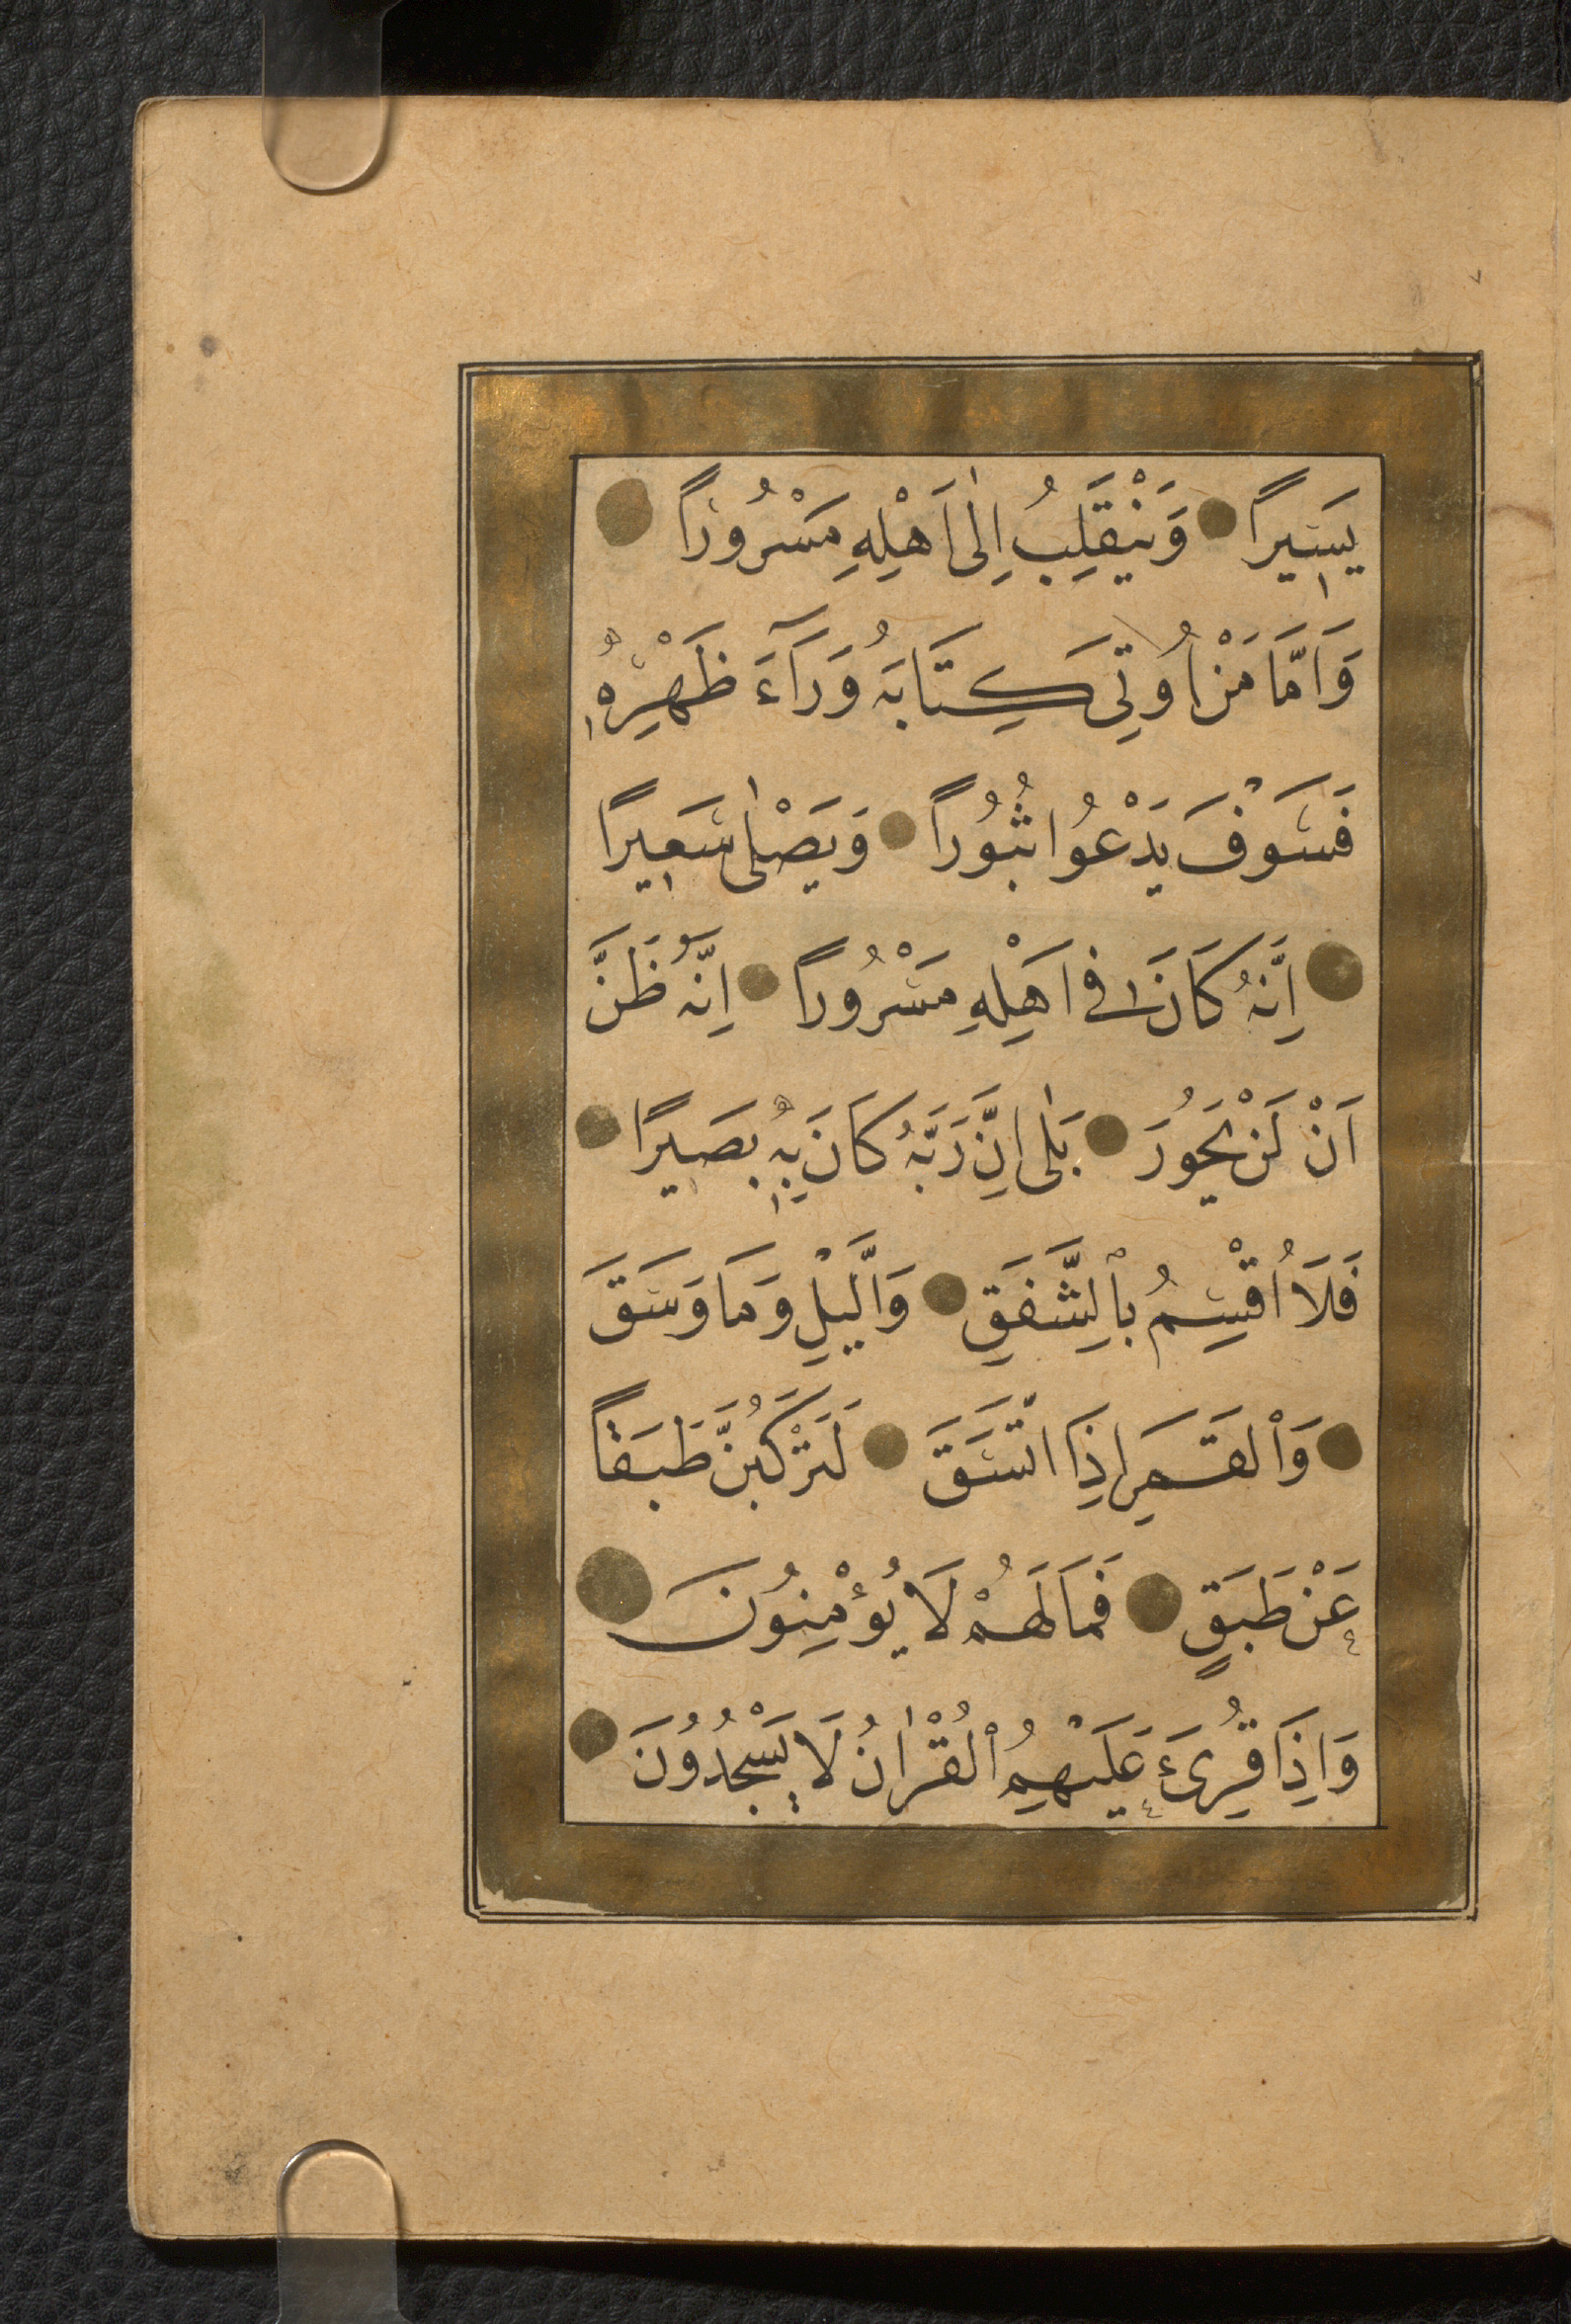 يَسِيرًا وَيَنْقَلِبُ اِلٰى اَهْلِهِ مَسْرُورًا
وَاَمَّا مَنْ اُوتِىَ كِتَابَهُ وَرَآءَ ظَهْرِهٖ
فَسَوْفَ يَدْعُوا ثُبُورًا وَيَصْلٰى سَعِيرًا
اِنَّهُ كَانَ فِى اَهْلِهِ مَسْرُورًا اِنَّهُ ظَنَّ
اَنْ لَنْ يَحُورَ بَلٰى اِنَّ رَبَّهُ كَانَ بِهٖ بَصِيرًا
فَلَا اُقْسِمُ بِالشَّفَقِ وَالَّيْلِ وَمَا وَسَقَ
وَالْقَمَرِ اِذَا اتَّسَقَ لَتَرْكَبُنَّ طَبَقًا
عَنْ طَبَقٍ فَمَا لَهُمْ لَا يُؤْمِنُونَ
وَاِذَا قُرِئَ عَلَيْهِمُ الْقُرْاٰنُ لَا يَسْجُدُونَ